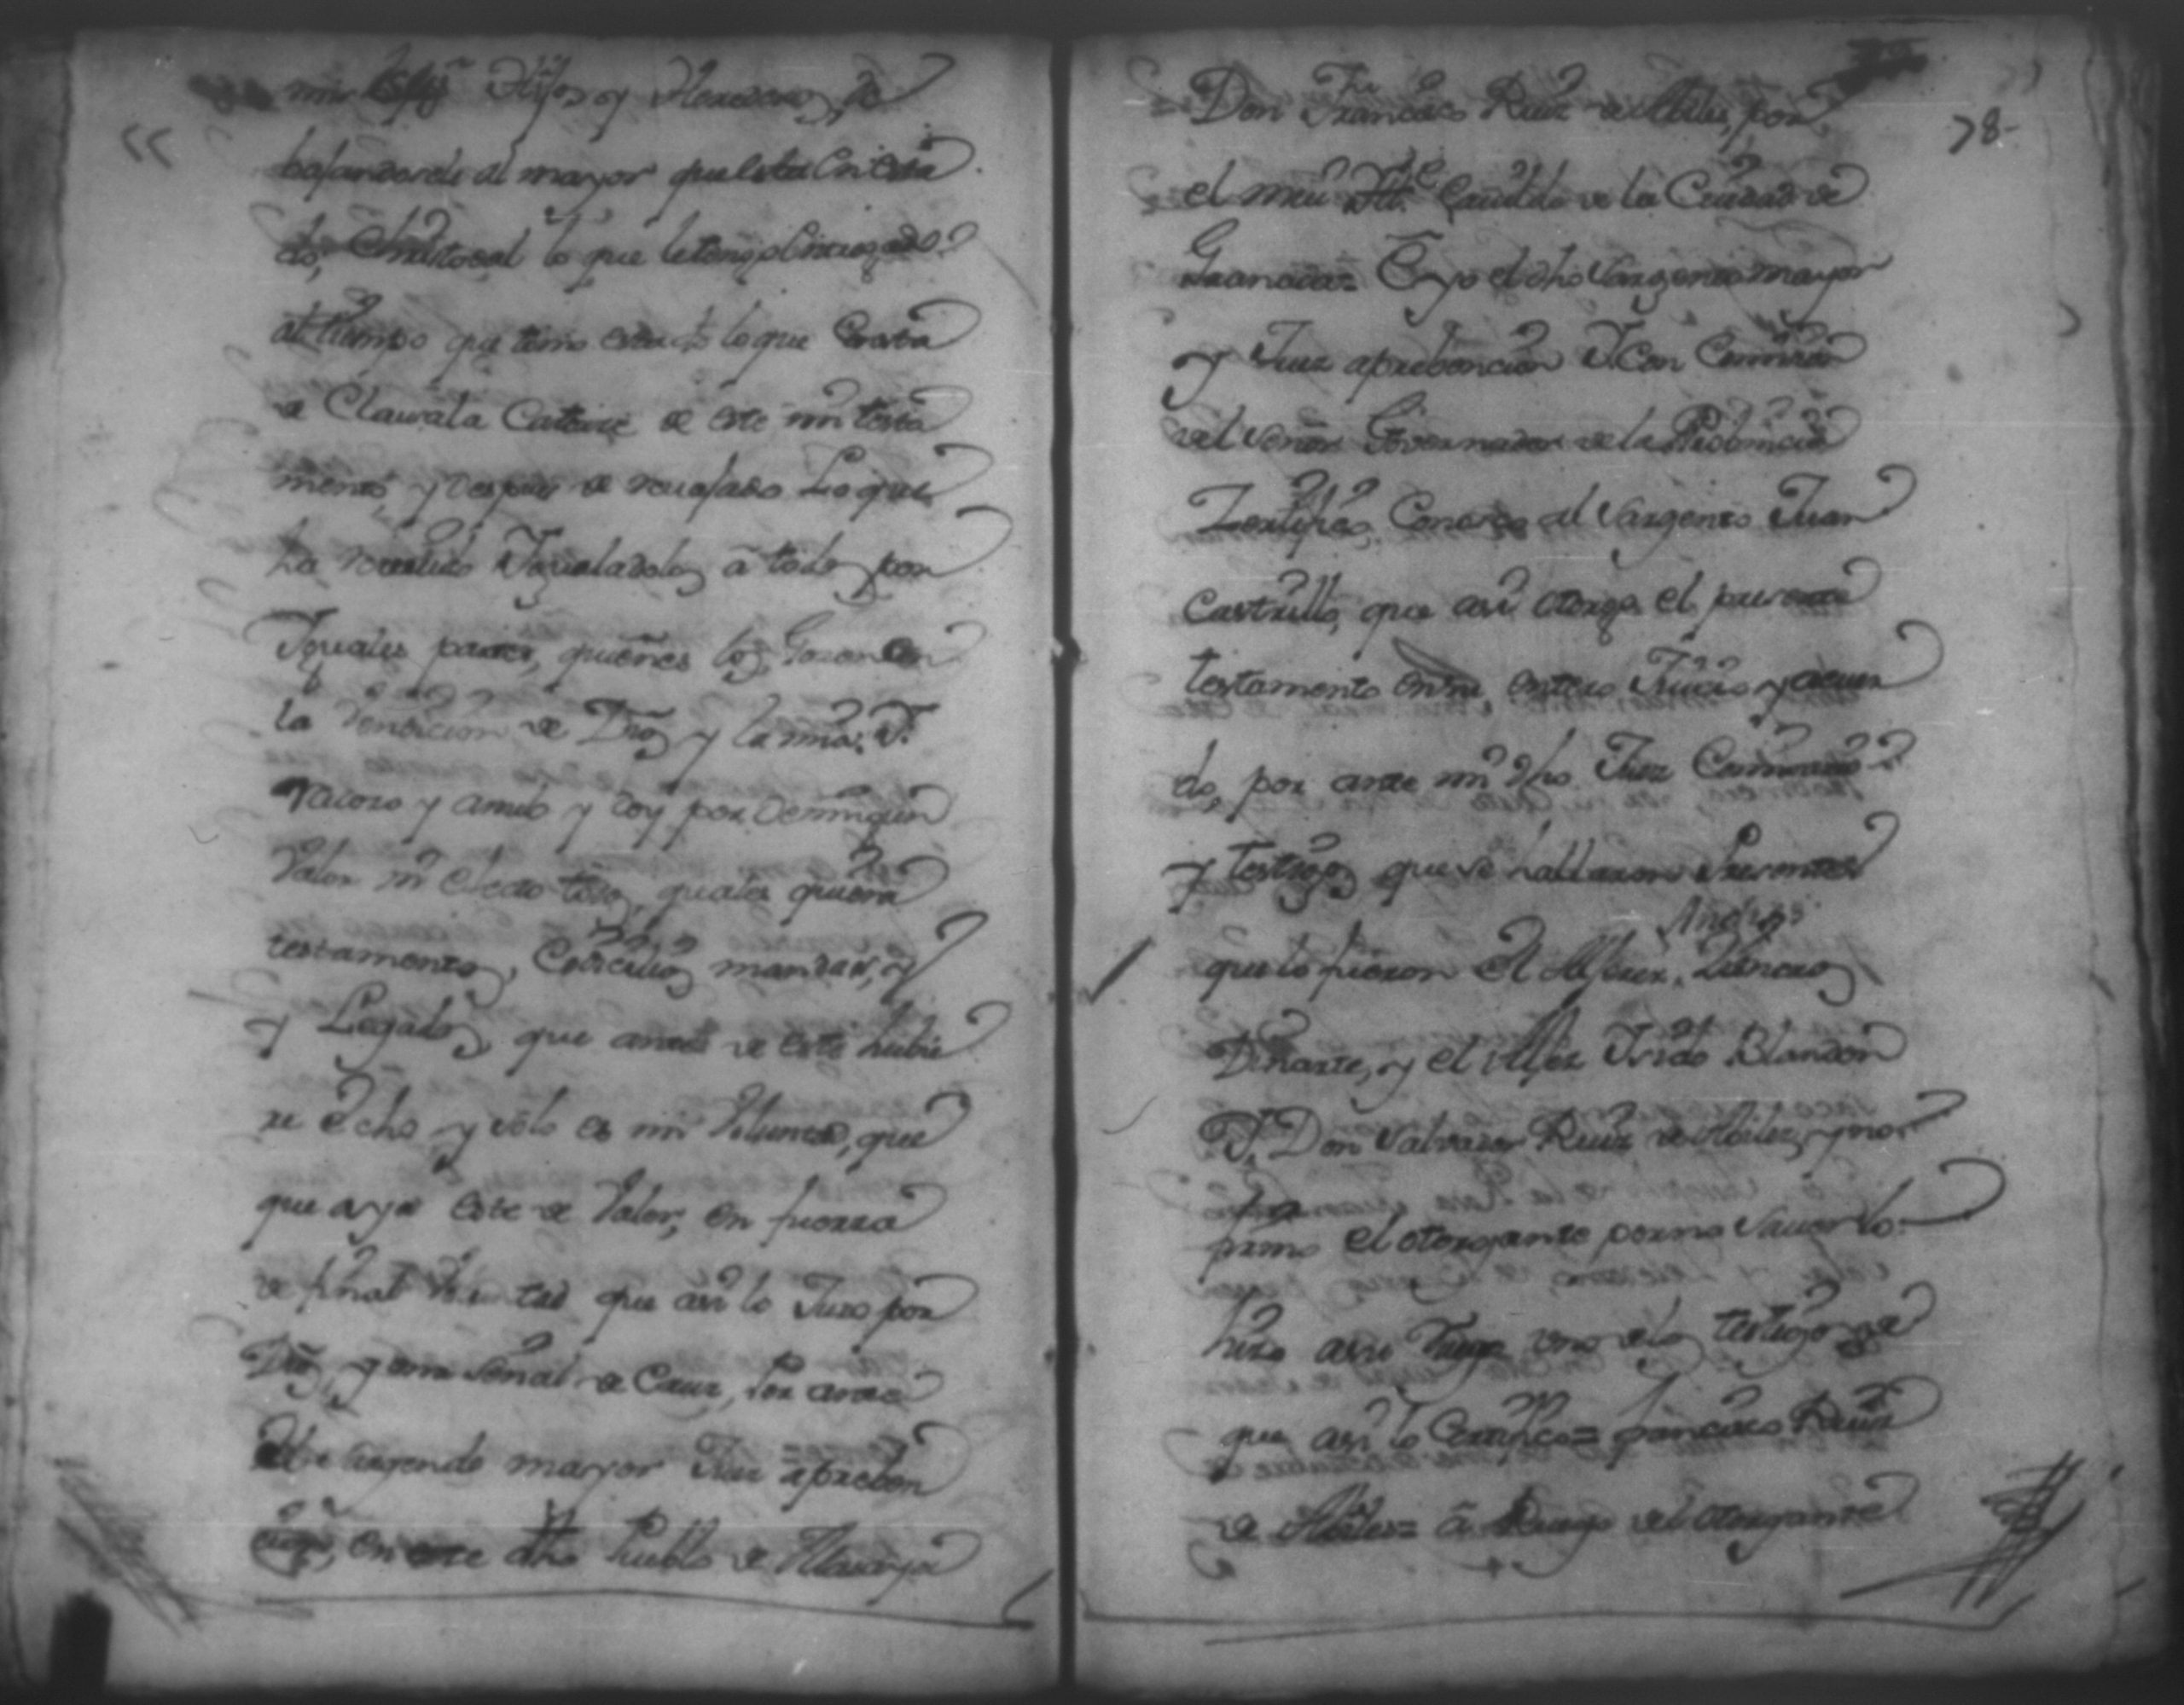 mis Hijos y Herederos, re
bajandosele al mayor que esta en esta
do, Christoval lo que le tengo entregado
al tiempo que tomo estado lo que consta
a Clausula Catorce de este mi testa
mento, y despues de revajado Lo que
ha recivido Igualadolos a todos por
Iguales partes, quienes los Gozen con
la vendicion de Dios y la mia; I.
Revoco y anulo y doy por de ningun
Valor ni efecto todos, quales quiera
testamentos, Codicilios mandas, y
y Legados, que antes de este hubie
re echo y solo es mi Voluntad, que
que aya este de Valor, en fuerza
de final Voluntad que assi lo Juro por
Dios y una señal de Cruz, Por ante
el Sargento mayor Juez a prebon
cion, en este dho Pueblo de Masaya
78-
Don Francisco Ruiz de Abiles, por
el mui Iltte Cavildo de la Ciudad de
Granada= E yo el dho Sargento mayor
y Juez aprebencion I. Con Comision
del Señor Governador de la Probincia
Zertifico Conosco al Sargento Juan
Castrillo, que assi otorga el presente
testamento en su entero Juicio y acuer
do, por ante mi dho Juez Comisario
y testigos que se hallaron Presentes
Andres
que lo fueron El Alferez, Zisneros
Duarte, y el Alfez Isido Blandon
I. Don Salvador Ruiz de Abiles, y no
firmo el otorgante por no saver lo
hizo a su Ruego uno de los testigos de
que assi lo Certifico= Francisco Ruiz
de Abiles= a Ruego del otorgante